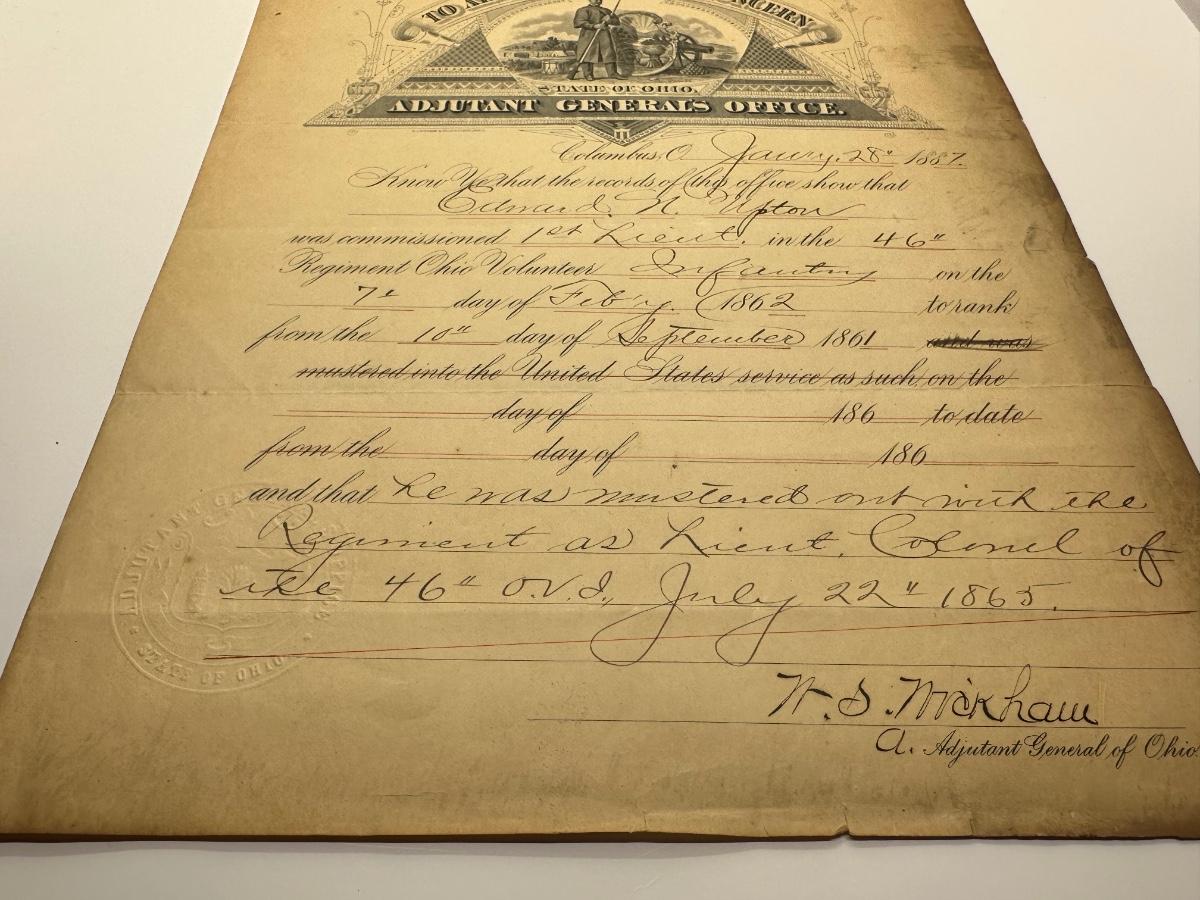 TO A CONCERN
STATE OF OHIO,
ADJUTANT GENERAL'S OFFICE.
Columbus, O. Jan'ry. 28" 1887.
Know Ye that the records of this office show that
Edward N. Upton
was commissioned 1st Lieut. in the 46"
Regiment Ohio Volunteer Infantry on the
7" day of Feb'ry. 1862 to rank
from the 10" day of September 1861 and was
mustered into the United States service as such, on the
day of 186 to date
from the day of 186
and that he was mustered out with the
Regiment as Lieut. Colonel of
the 46" O.V.I., July 22" 1865.
ADJUTANT GENERAL'S OFFICE
STATE OF OHIO
W. S. Wickham
A. Adjutant General of Ohio